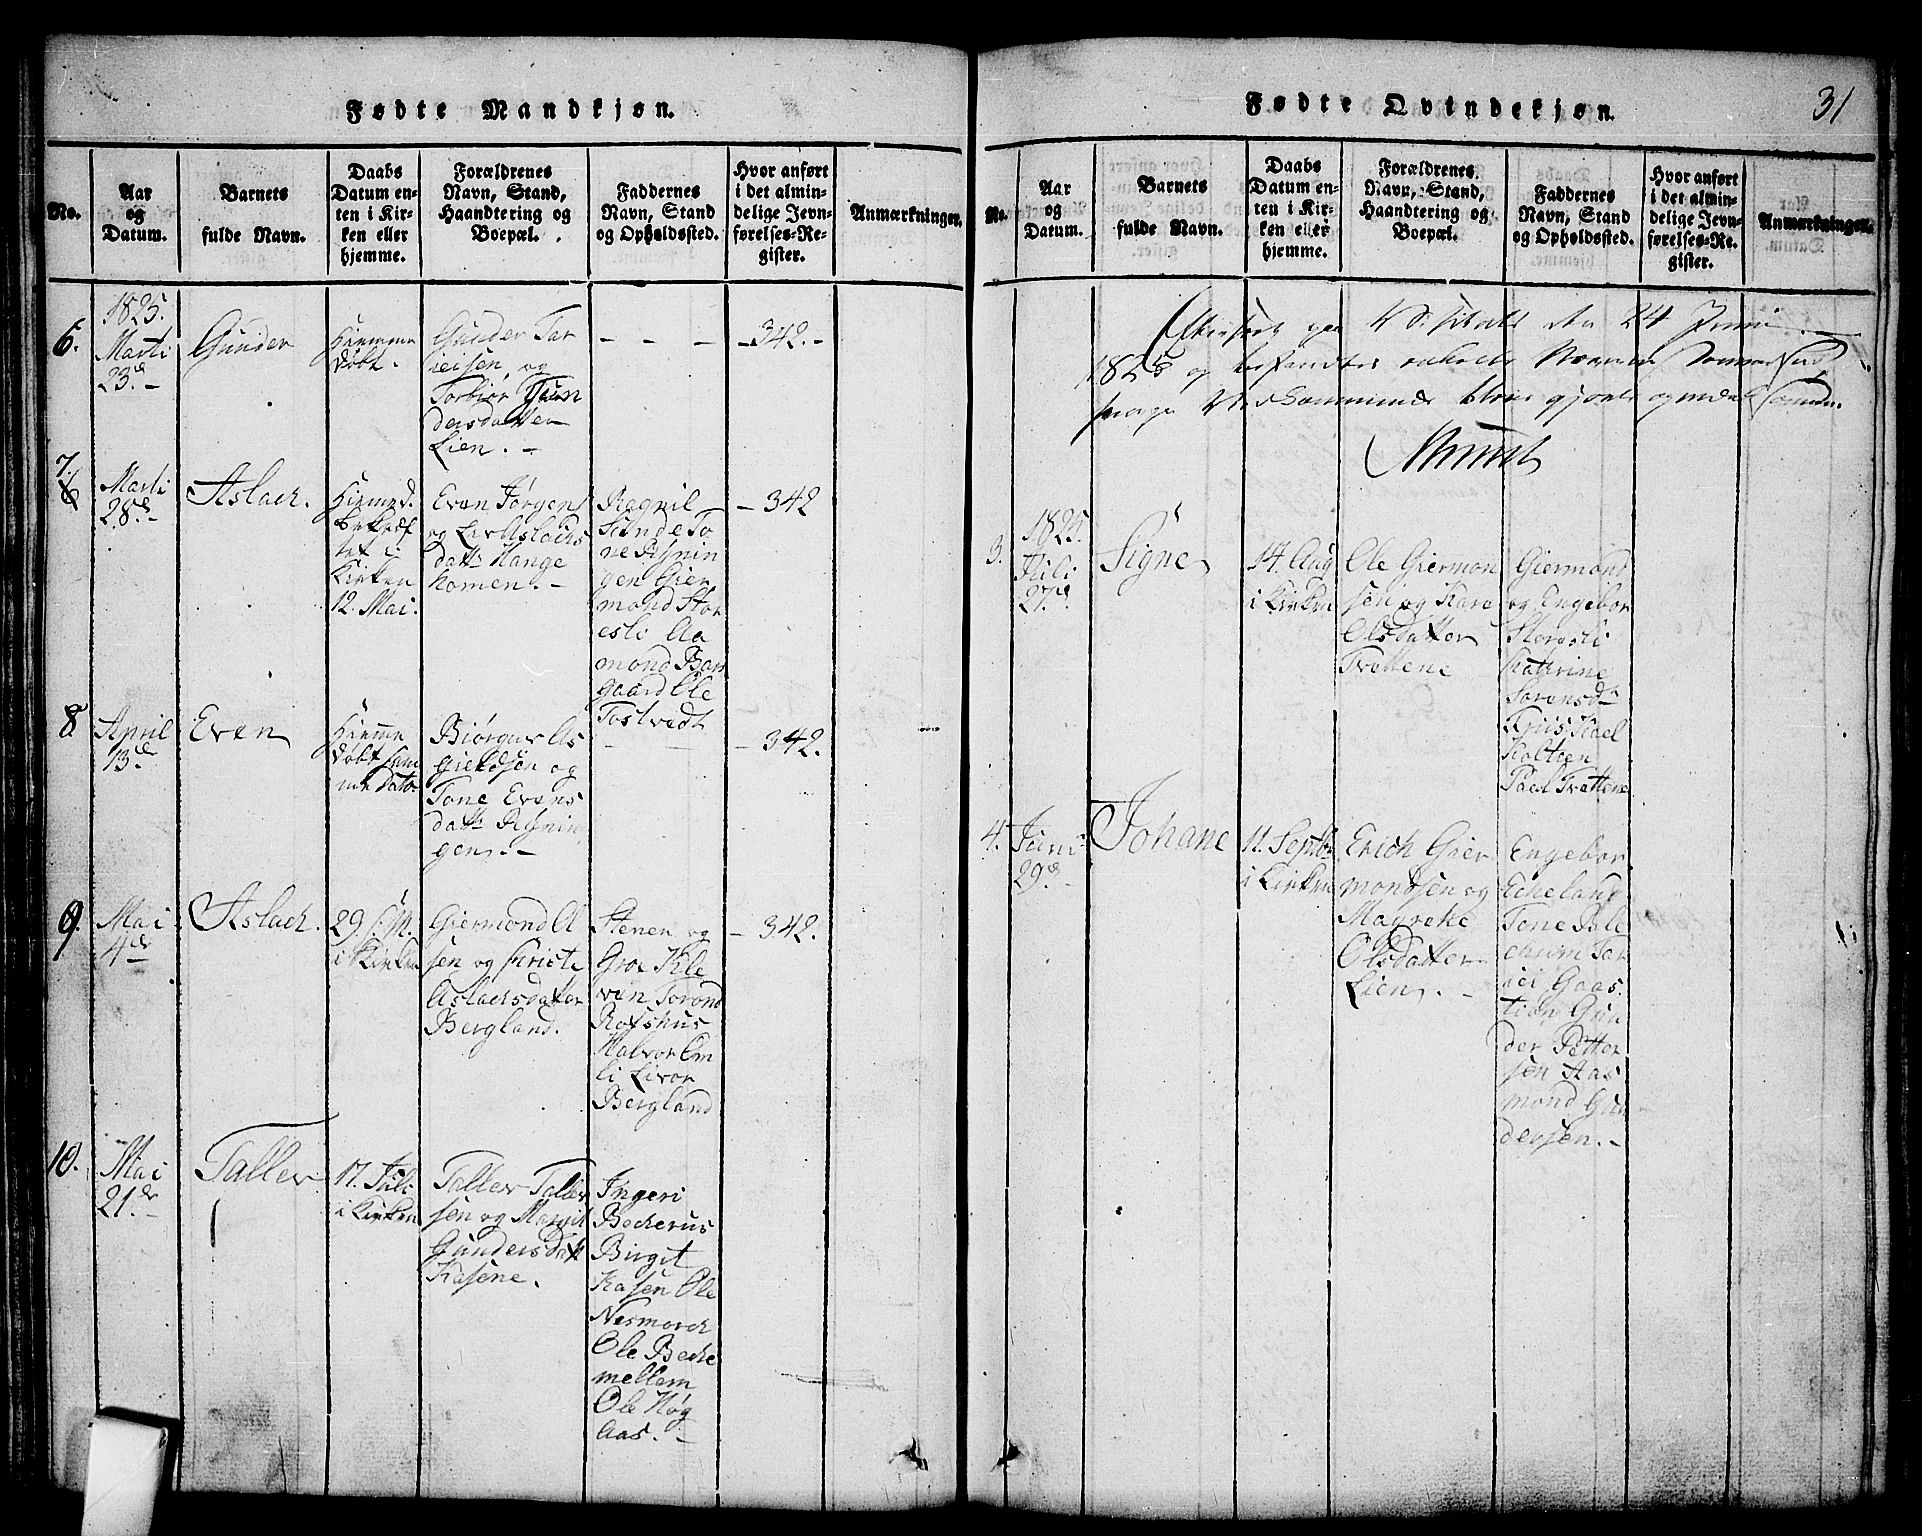 Fødte Mandkjøn.
No.
Aar
og
Datum.
Barnets
fulde Navn.
Daabs
Datum en-
ten i Kir-
ken eller
hjemme.
Forældrenes
Navn, Stand,
Haandtering og
Boepæl.
Faddernes
Navn, Stand
og Opholdssted.
Hvor anført
i det almin-
delige Jevn-
førelses-Re-
gister.
Anmærkninger.
6.
1825.
Marti
23d.-
Gunder
Hiemme
døbt.
Gunder Tar
ieisen, og
Torbiør Gun
dersdatter
Lien. -
- - -
- 342. -
7.
6
Marti
28d.-
Aslach.
Hiemmed.
i
Kirken
12. Mai.
Even Jørgens
og Liv Aslachs
datt: Hange
homen. -
Ragnil
Sunde To
ne Rÿnin
gen Gier
mond Stor
esli Aa
mond Bar
gaard Ole
Tostvedt
- 342
8
April
13d
Even
Hiemme
døbt sam
me Dato
Biørguv As
gieldsen og
Tone Evens
datt: Rÿnin
gen. -
- 342.
9.
Mai
4d
Aslach.
29. s. M.
i Kirken
Giermond A
sen og Christi
Aslachsdatter
Bergland.
Stenen og
Groe Kle
ven Torond
Rofshus
Halvor Om
li Livor
Bergland
- 342.
10.
Mai
21d.-
Tallev
17. Juli
i Kirken
Tallev Tallev
sen og Margit
Gundersdatt
Kasene.
Ingeri
Bocherus
Birgit
Kasen Ole
Nesmoech
Ole Beche
mellem
Ole Høg
aas. -
Fødte Qvindekjøn.
31
No.
Aar
og
Datum.
Barnets
fulde Navn.
Daabs
Datum en-
ten i Kir-
ken eller
hjemme.
Forældrenes
Navn, Stand,
Haandtering og
Boepæl.
Faddernes
Navn, Stand
og Opholdssted.
Hvor anført
i det almin-
delige Jevn-
førelses-Re-
gister.
Anmærkninger.
Efterseet paa Visitats den 24 Juni
1825 og befandtes
blive gjorte
3.
1825.
Juli
27d.
Signe
14. Aug
i Kirken
Ole Giermon
sen og Kari
Olsdatter
Trættene
Giermond
og Engebor
Storesli
Kathrine
Sørensdt
Friis Kael
Holtten
Paul Trættene
4.
Juni
29d.-
Johane
11. Septbr
i Kirken
Erich Gier
mondsen og
Magrete
Olsdatter
Lien. -
Engebor
Echeland
Tone Ble
chum Tar
iei Gaas.
tion Gun
der Petter
sen Aas
mond Gun
dersen. -